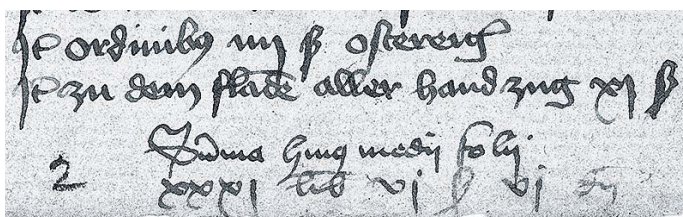 It ordinibus iiij ß osterrich
It zu dem flade aller hand zug xj ß
Suma huiq medij folij
2 xxxj lib vj ß vj